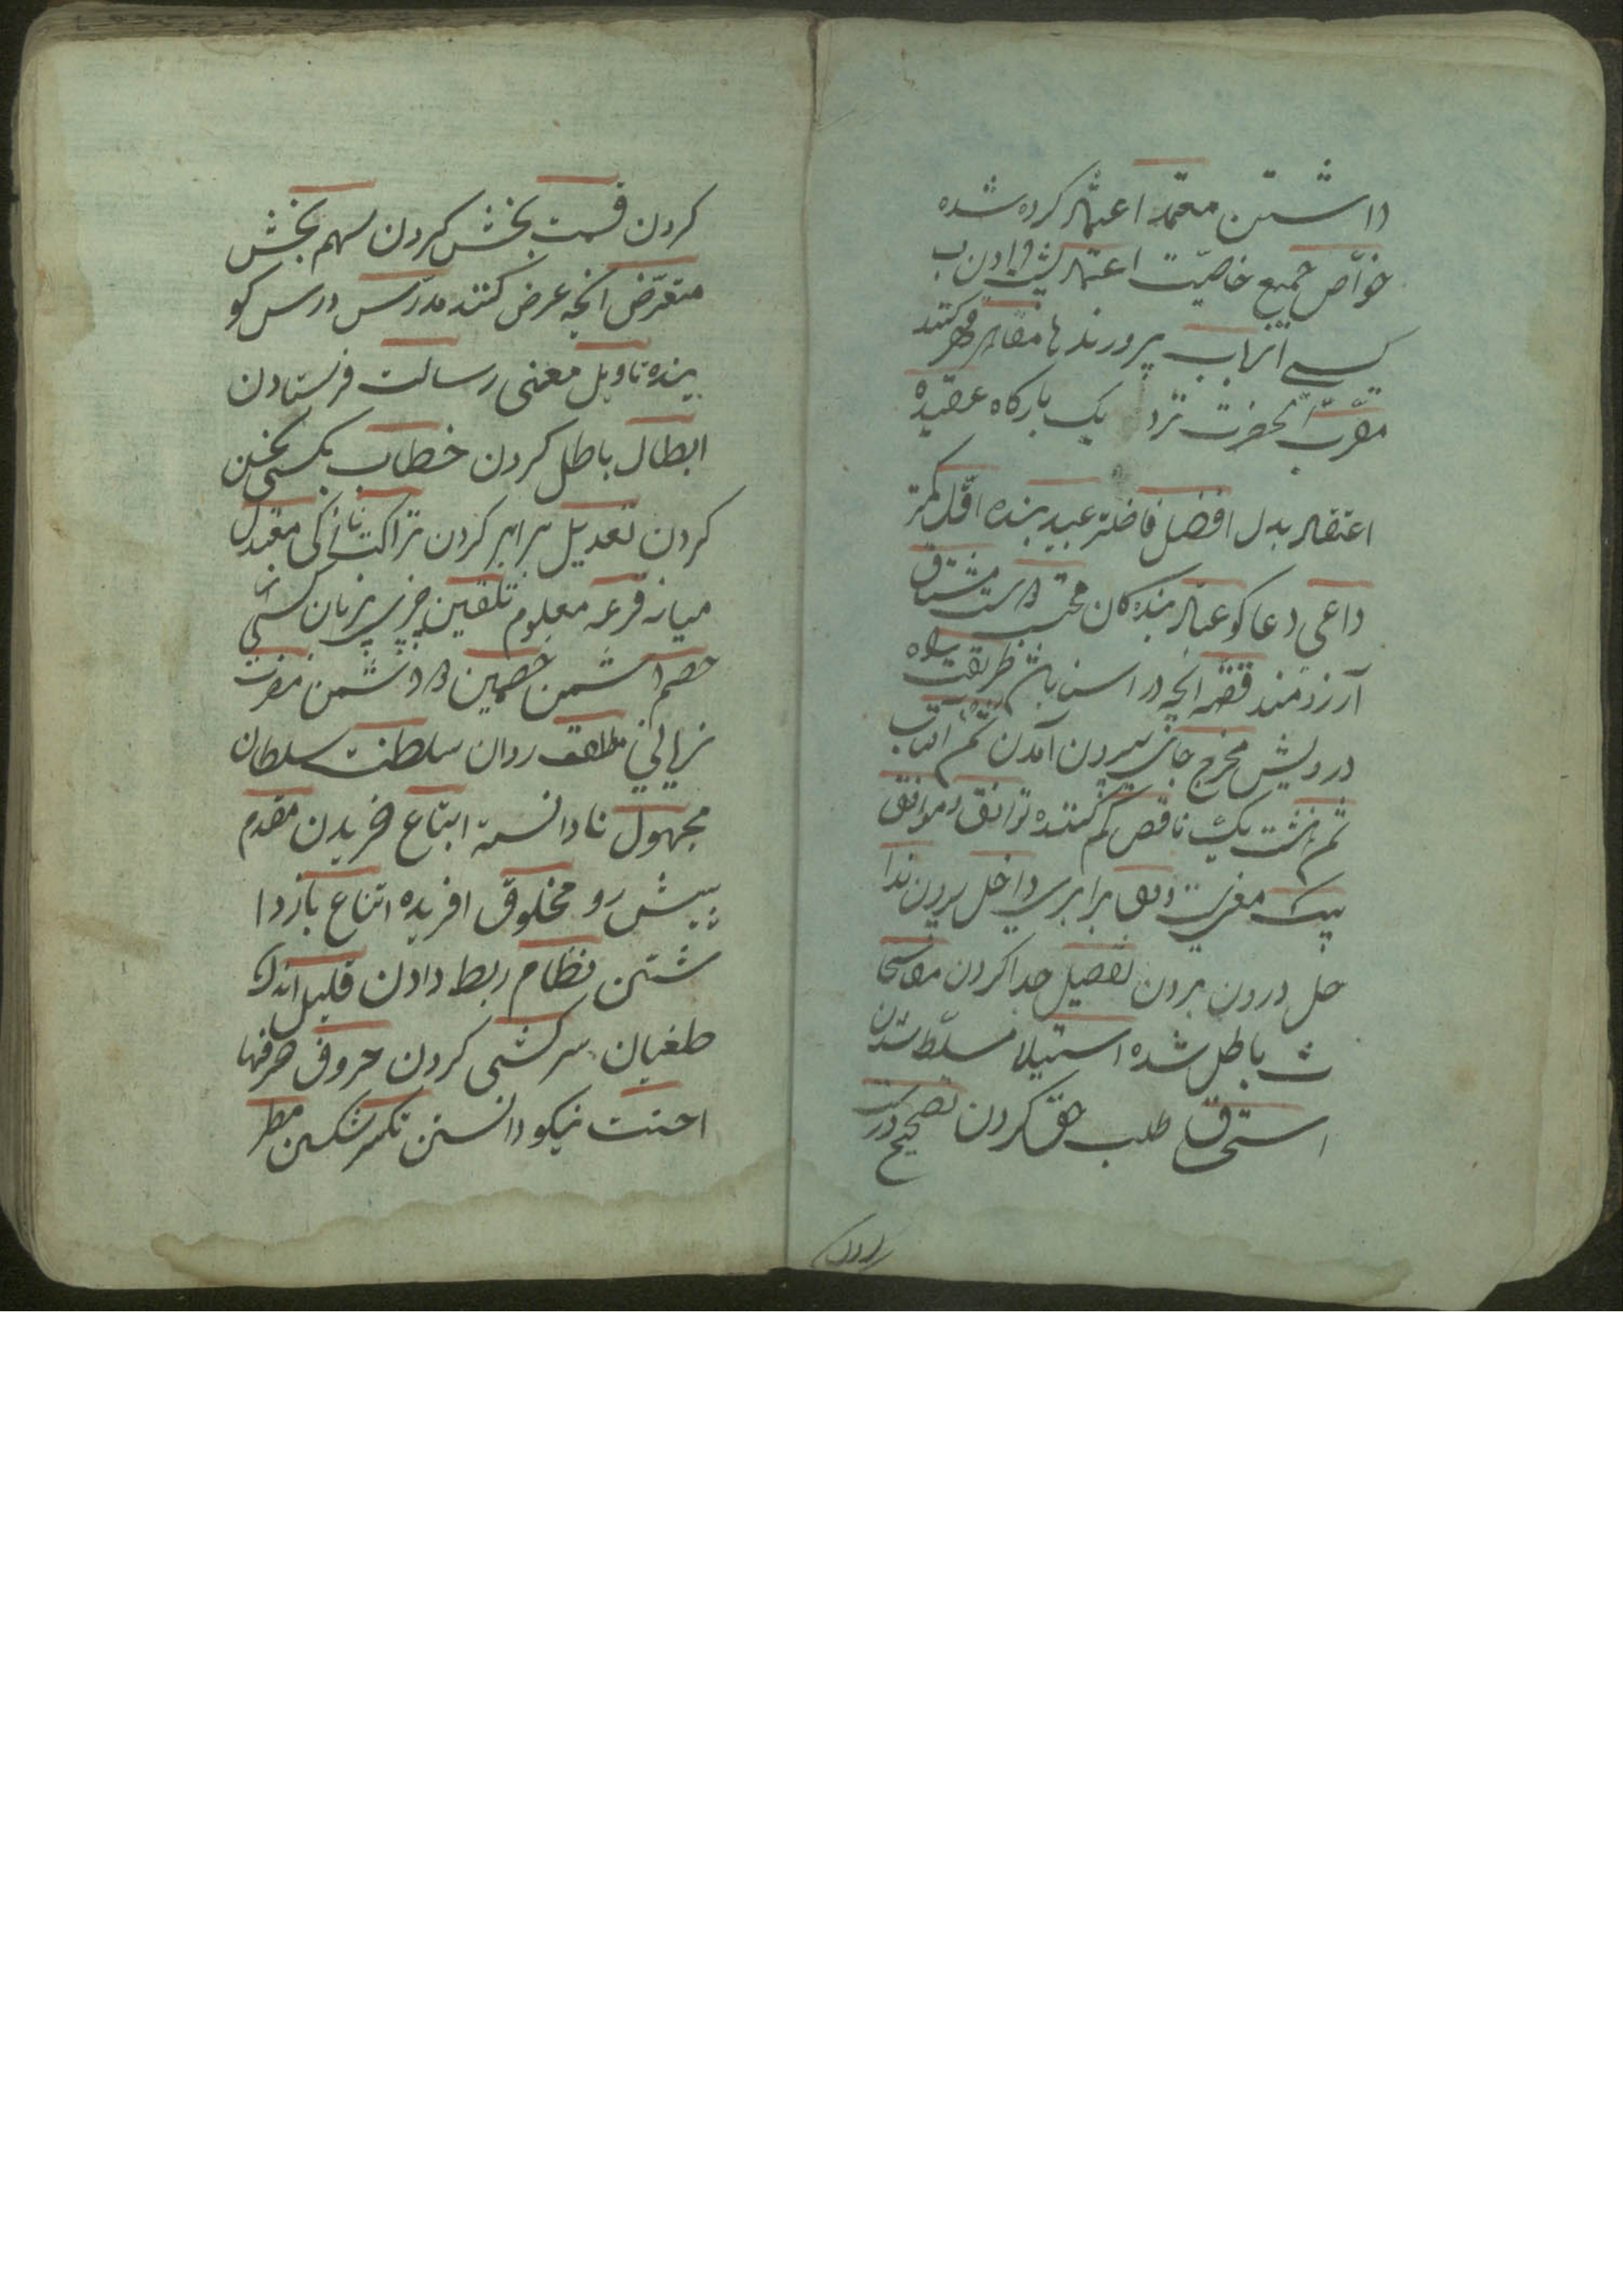 داشتن معتمد اعتماد کرده شده
خواص جمیع خاصیت اعتماد پشت دادن ب
کسی ارباب پرورندها مقاهر قهر کنند
مقرب الحضرت نزد یک بارکاه عقیده
اعتقاد بدل افضل فاضلتر عبید بنده اقل کمتر
داعی دعا کو عباد بندکان محب دوست مشتاق
آرزومند قصه انچه در اسن باش طریقت راه
درویش مخرج جای بیرون آمدن
ناقص کم کننده توافق موافق
مغرب وفق برابری داخل برون ندا
خل درون بردن تفصیل جدا کردن
باطل شده استیلا مسلط شدن
استحقاق طلب حق کردن تصحیح درست
کردن قسمت بخش کردن سهم بخش
متعرض انچه عرض کنند مدرس درس کو
ینده تاویل معنی رسالت فرستادن
ابطال باطل کردن خطاب بکسی سخن
کردن تعدیل برابر کردن نزاکت نازکی معتدل
میانه قرعه معلوم تلقین چیزی بزبان کسی
خصم دشمن خصمین دو دشمن مضرت
نهالی مطلق روان سلطنت سلطان
مجهول نادانسته ابتاع خریدن مقدم
پیش رو مخلوق افریده امتناع بازدا
شتن نظام ربط دادن قلیل اندک
طغیان سرکشی کردن حروف حرفها
احسنت نیکو دانستن تکسر شکستن مطر